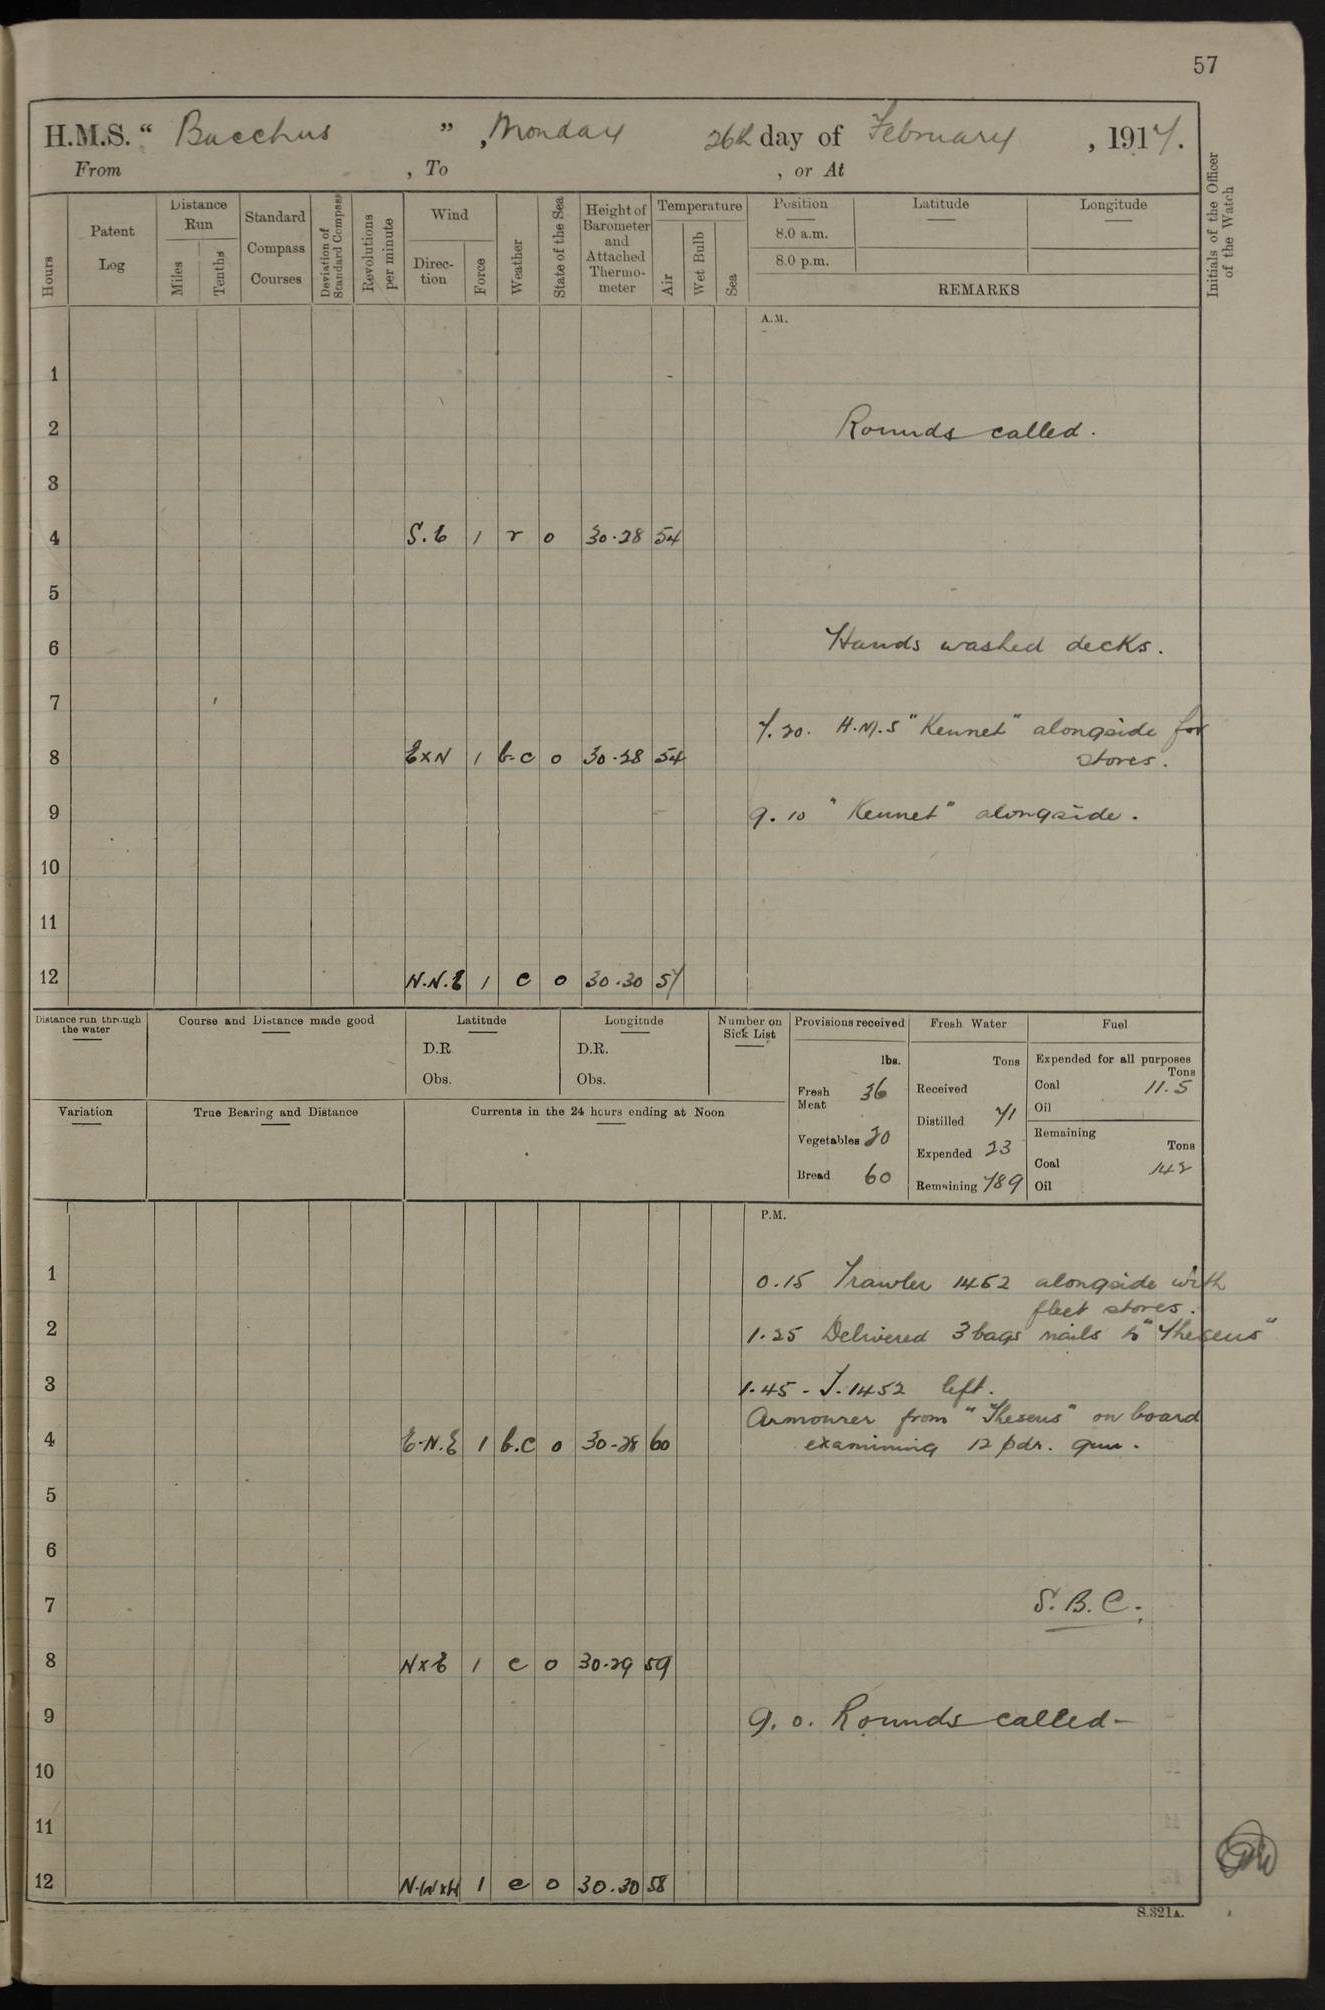 57
H.M.S. “ Bacchus ” , Monday 26th day of February , 1917.
From , To , or At
Initials of the Officer of the Watch
Hours
Patent Log
Distance Run
Miles
Tenths
Standard Compass Courses
Deviation of Standard Compass
Revolutions per minute
Wind
Direc-tion
Force
Weather
State of the Sea
Height of Barometer and Attached Thermo-meter
Temperature
Air
Wet Bulb
Sea
Position Latitude Longitude
8.0 a.m.
8.0 p.m.
REMARKS
A.M.
1
2 Rounds called.
3
4 S.E 1 r 0 30.28 54
5
6 Hands washed decks.
7
7.20. H.M.S "Kennet" alongside for
8 ExN 1 b.c 0 30.28 54 stores.
9 9.10 "Kennet" alongside.
10
11
12 N.N.E 1 c 0 30.30 57
Distance run through the water
Course and Distance made good
Latitude
D.R
Obs.
Longitude
D.R.
Obs.
Number on Sick List
Provisions received
lbs.
Fresh Meat 36
Vegetables 20
Bread 60
Fresh Water
Tons
Received
Distilled 71
Expended 23
Remaining 789
Fuel
Expended for all purposes
Tons
Coal 11.5
Oil
Remaining
Tons
Coal 142
Oil
Variation
True Bearing and Distance
Currents in the 24 hours ending at Noon
P.M.
1 0.15 Trawler 1452 alongside with
fleet stores.
2 1.25 Delivered 3 bags nails to "Theseus"
3 1.45 - T.1452 left.
Armourer from "Theseus" on board
4 E-N.E 1 b.c 0 30-28 60 examining 12 pdr. gun.
5
6
7 S.B.C.
8 NxE 1 c 0 30.29 59
9 9.0. Rounds called-
10
11
12 1 c 0 30.30 58
S.321A.